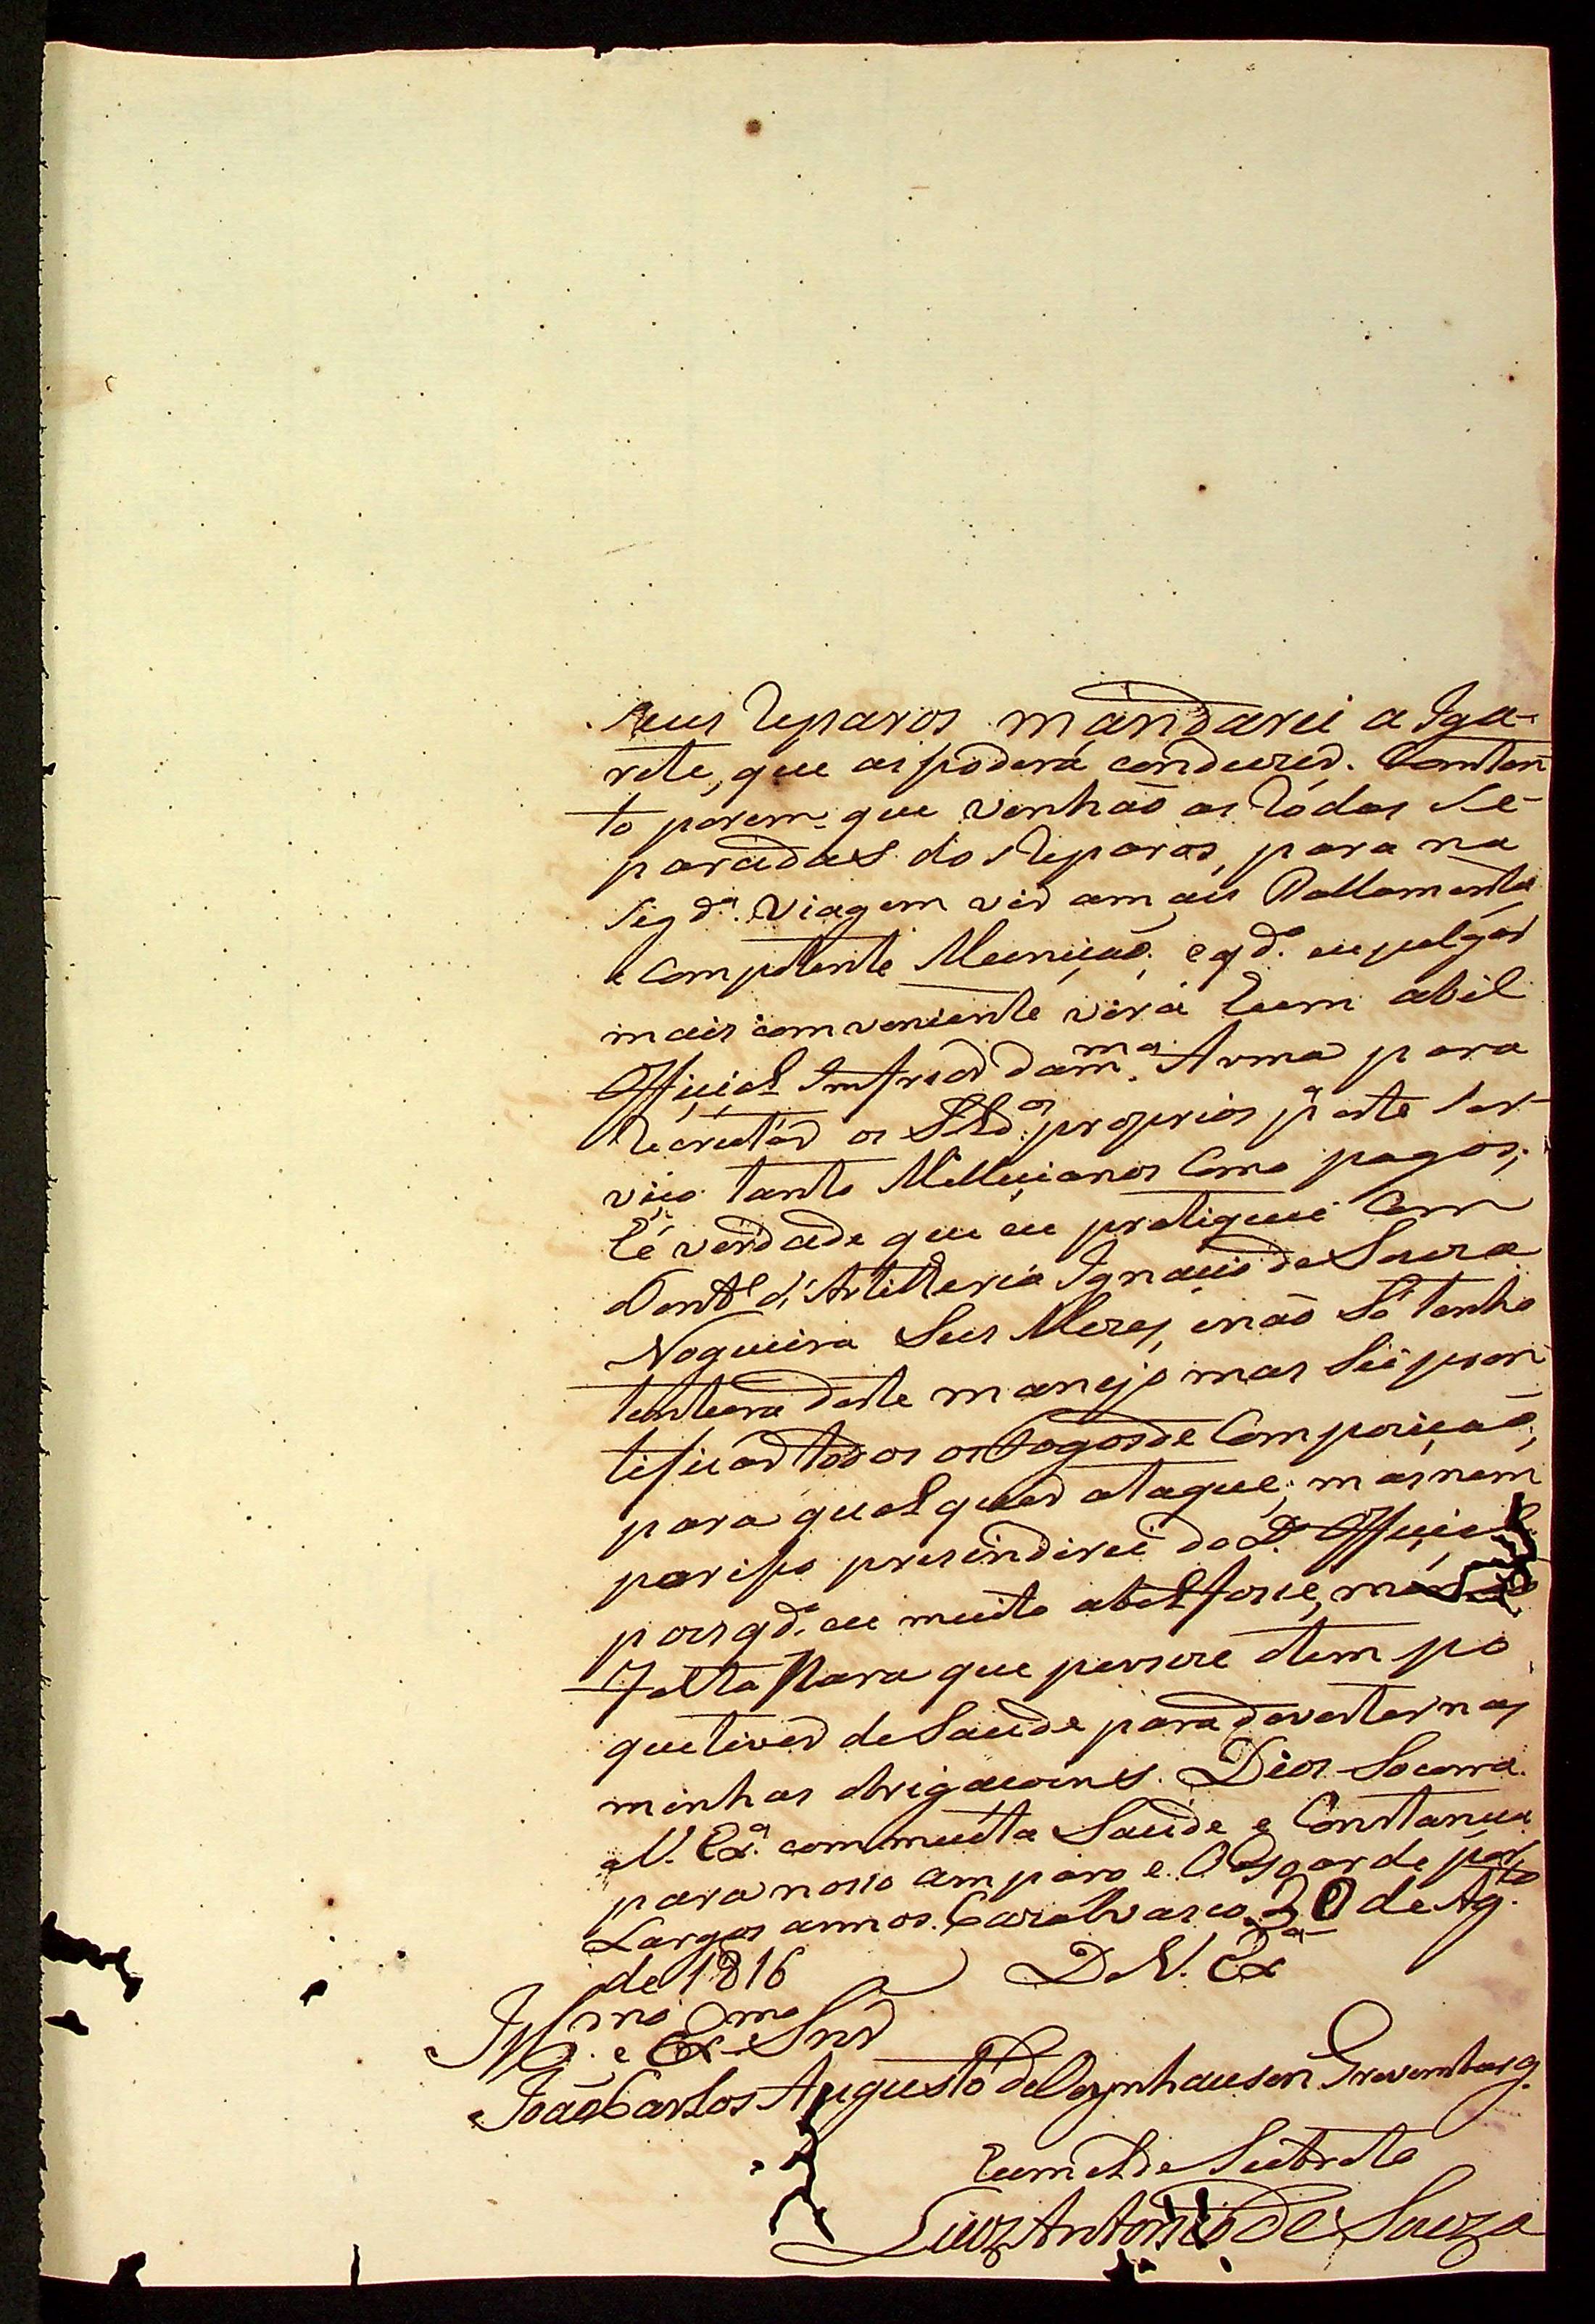 seus Reparos mandarei a Iga-
rite, que as poderá conduzir. Contan
to porem que venhaõ as Ródas Se-
paradas dos Reparos, para na
seg.da viagem vir am ais Pallamenta
e competente Muniçaõ. e qd.o eu julgar
mais comveniente virá hum abil
Official Imfrior dam.ma Arma para
Recrutar os SLd.os proprios p.a este Ser-
viço tanto Milliçianos Como pagos;
hé verdade que eu pratiquei Com
oTent.e d'Artilheria Ignaçio de Souza
Nogueira Seis Mezes, enaõ Só tenho
tentura deste manejo mas Sei pron
tificar todos os fogos de Compoziçaõ,
para qualquer ataque; mas nem
porisso prescindirei do D.o Official
pois qd.o eu muito abil fosse, mas
falta para que pensse otem po
que tiver de Saude para devertir nas
minhas obrigacoins. Dios Socorra
aV. Ex.a com muita Saude e Constancia
para nosso am paro e. O Sgoarde por
Largos annos. Cazalvasco. 20 de Ag.to
de 1816
D V. Ex.a
Ill.mo e Ex.mo Snr
Joaõ Carlos Augusto de Oeynhausen Grevemburg.
humelde Subdito
Luiz Antonio de Souza